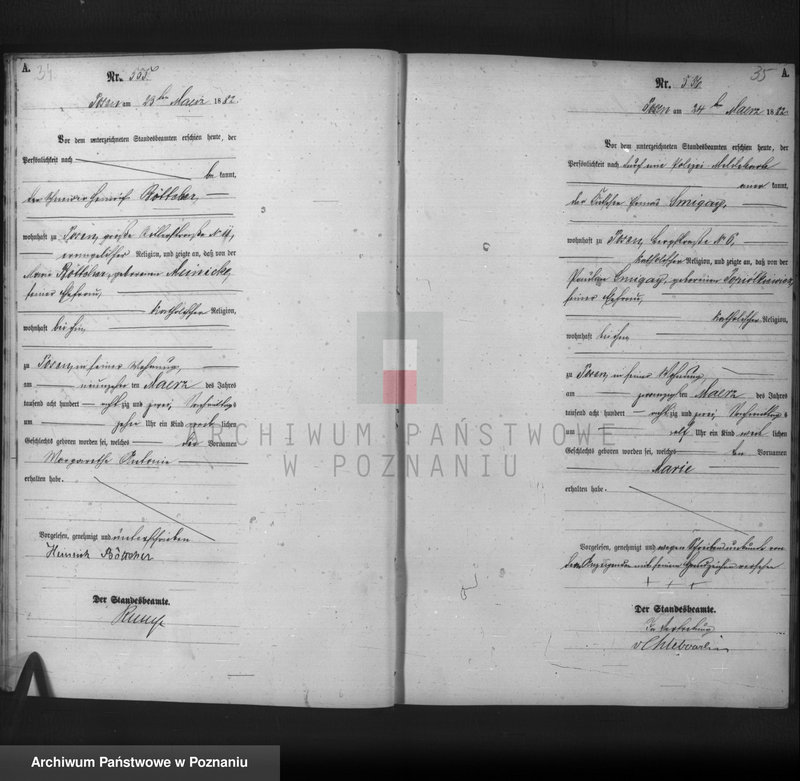 A.
34
Nr. 535
Posen am 23 ten Maerz 1882.
Vor dem unterzeichneten Standesbeamten erschien heute, der
Persönlichkeit nach
be kannt,
der Heinrich Böttcher,
wohnhaft zu Posen, große № 4,
evangelischer Religion, und zeigte an, daß von der
Marie Böttcher, geborenen Muinicke,
seiner Ehefrau,
katholischer Religion,
wohnhaft bei ihm,
zu Posen, in seiner Wohnung,
am neunzehn ten Maerz des Jahres
tausend acht hundert acht zig und zwei, Vormittags
um zehn Uhr ein Kind weib lichen
Geschlechts geboren worden sei, welches die Vornamen
Margarethe Antonie
erhalten habe.
Vorgelesen, genehmigt und unterschrieben
Heinrich Böttcher
Der Standesbeamte.
35
A.
Nr. 536
Posen am 24 ten Maerz 1882.
Vor dem unterzeichneten Standesbeamten erschien heute, der
Persönlichkeit nach durch eine Polizei Meldekarte
aner kannt,
der Kutscher Smigay,
wohnhaft zu Posen, Bergstraße № 6,
katholischer Religion, und zeigte an, daß von der
Pauline Smigay, geborenen
seiner Ehefrau,
katholischer Religion,
wohnhaft bei ihm
zu Posen, in seiner Wohnung
am zwanzig ten Maerz des Jahres
tausend acht hundert acht zig und zwei, Nachmittags
um elf Uhr ein Kind weib lichen
Geschlechts geboren worden sei, welches den Vornamen
Marie
erhalten habe.
Vorgelesen, genehmigt und wegen Schreibensunkunde von
dem Anzeigenden mit seinem Handzeichen versehen
+ + +
Der Standesbeamte.
In Vertretung
ARCHIWUM PAŃSTWOWE
W POZNANIU
Archiwum Państwowe w Poznaniu